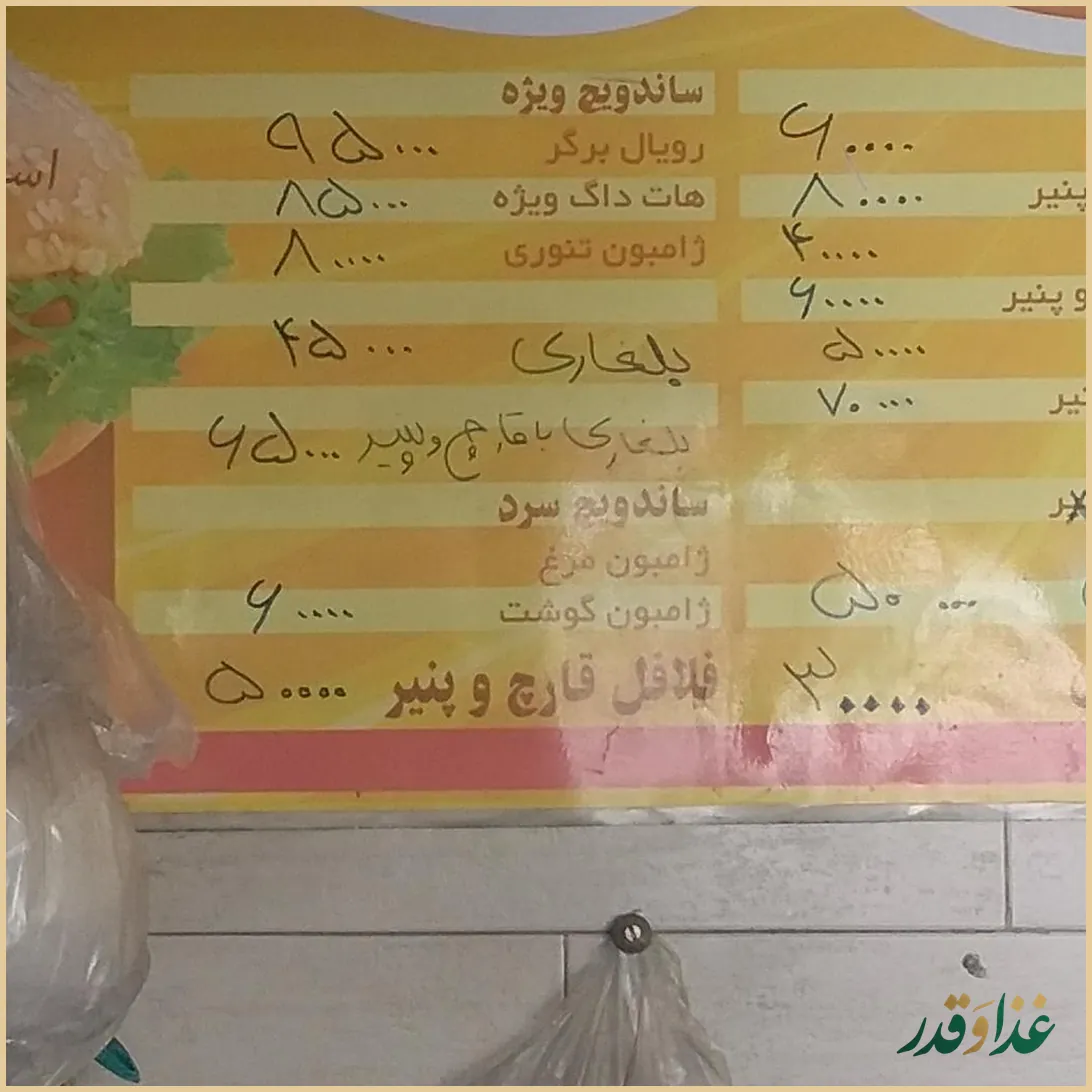 ساندویچ ویژه
رویال برگر ۹۵۰۰۰
هات داگ ویژه ۸۵۰۰۰
ژامبون تنوری ۸۰۰۰۰
بلغاری ۴۵۰۰۰
بلغاری با قارچ و پنیر ۶۵۰۰۰
ساندویچ سرد
ژامبون مرغ
ژامبون گوشت ۶۰۰۰۰
فلافل قارچ و پنیر ۵۰۰۰۰
۶۰۰۰۰
پنیر ۸۰۰۰۰
۴۰۰۰۰
و پنیر ۶۰۰۰۰
۵۰۰۰۰
۷۰۰۰۰
۵۰۰۰۰
۳۰۰۰۰
غذا و قدر